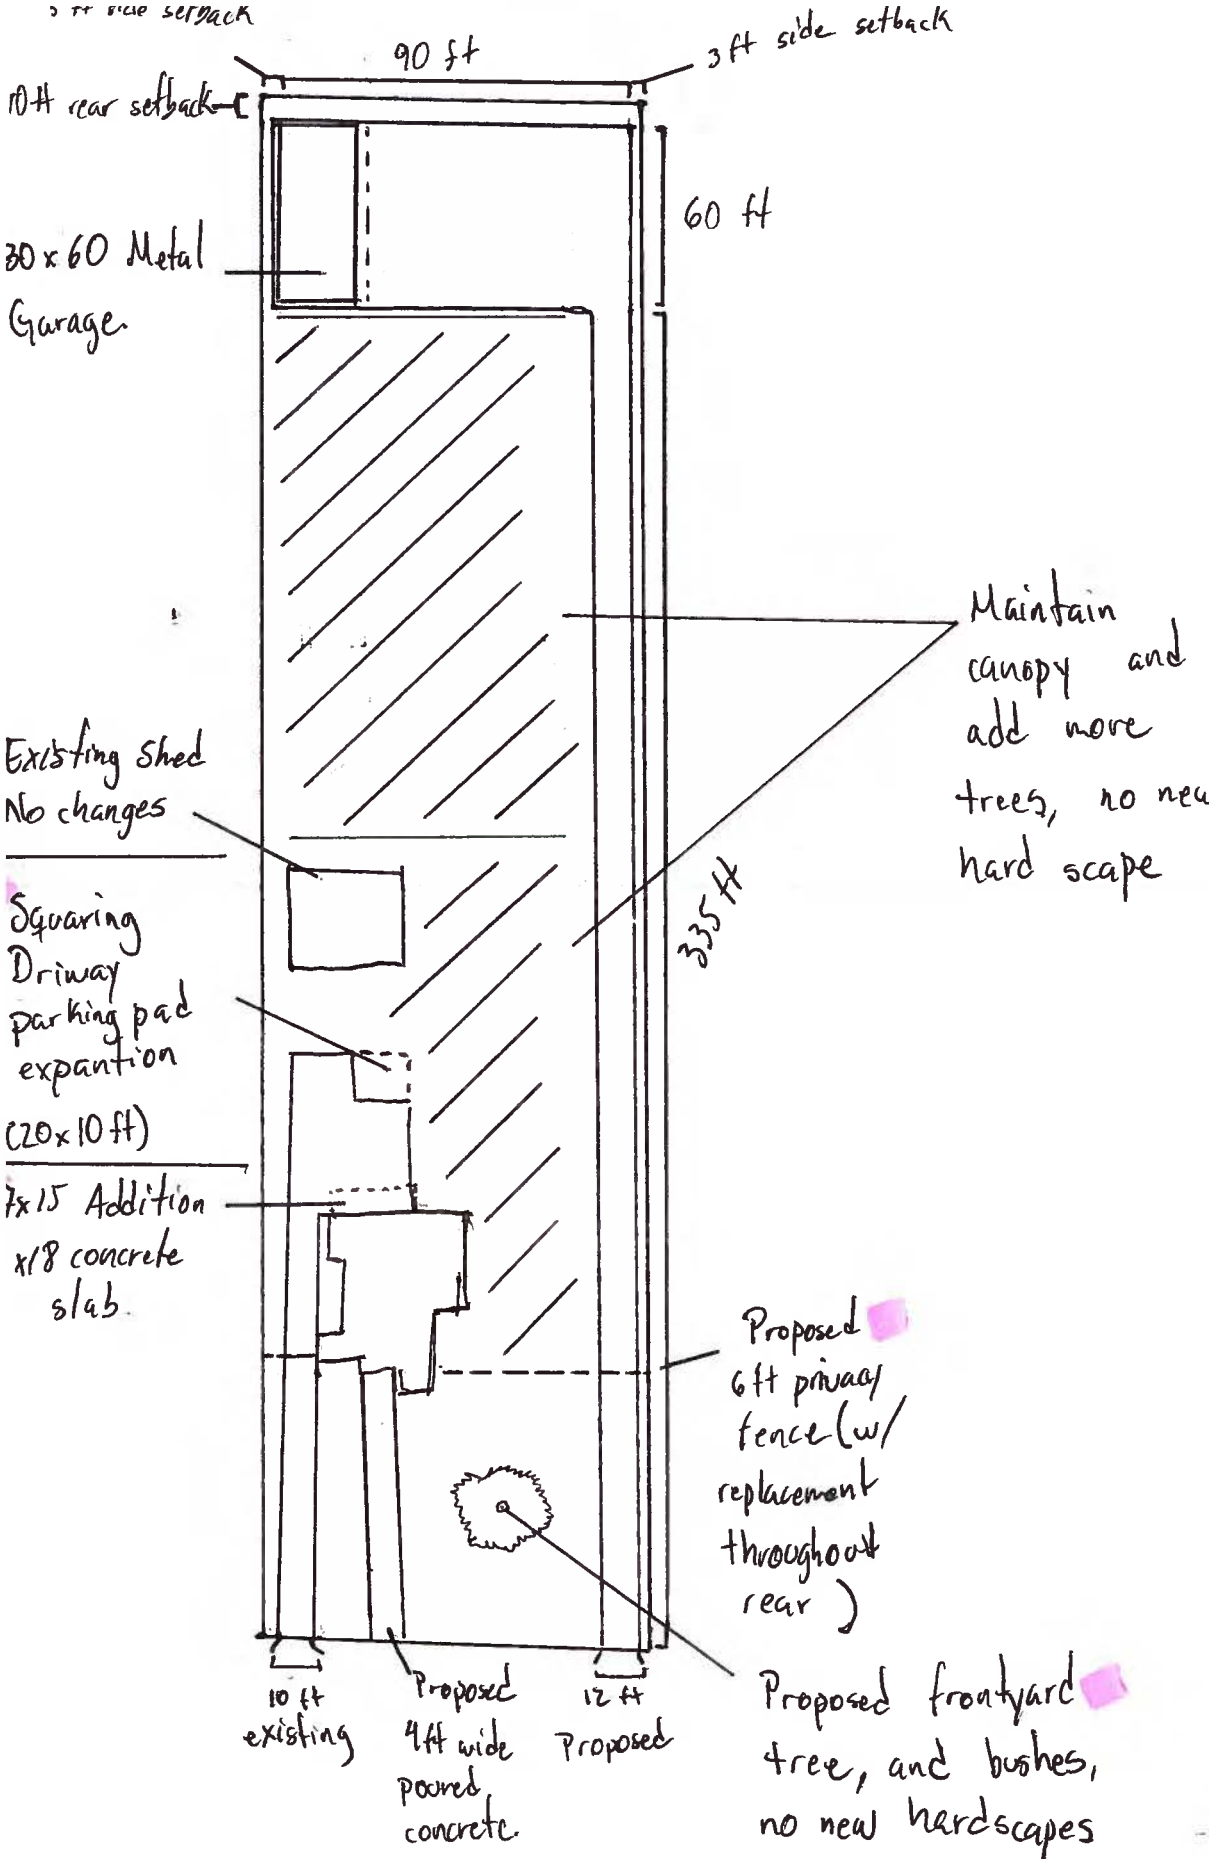 side setback
90 ft
3 ft side setback
10ft rear setback
60 ft
30 x 60 Metal
Garage.
Maintain
canopy and
add more
trees, no new
hard scape
Existing Shed
No changes
335 ft
Squaring
Driway
parking pad
expantion
(20x10 ft)
7x15 Addition
x18 concrete
slab.
Proposed
6ft privacy
fence (w/
replacement
throughout
rear)
10 ft
existing
Proposed
4ft wide
poured
concrete.
12 ft
Proposed
Proposed frontyard
tree, and bushes,
no new hardscapes